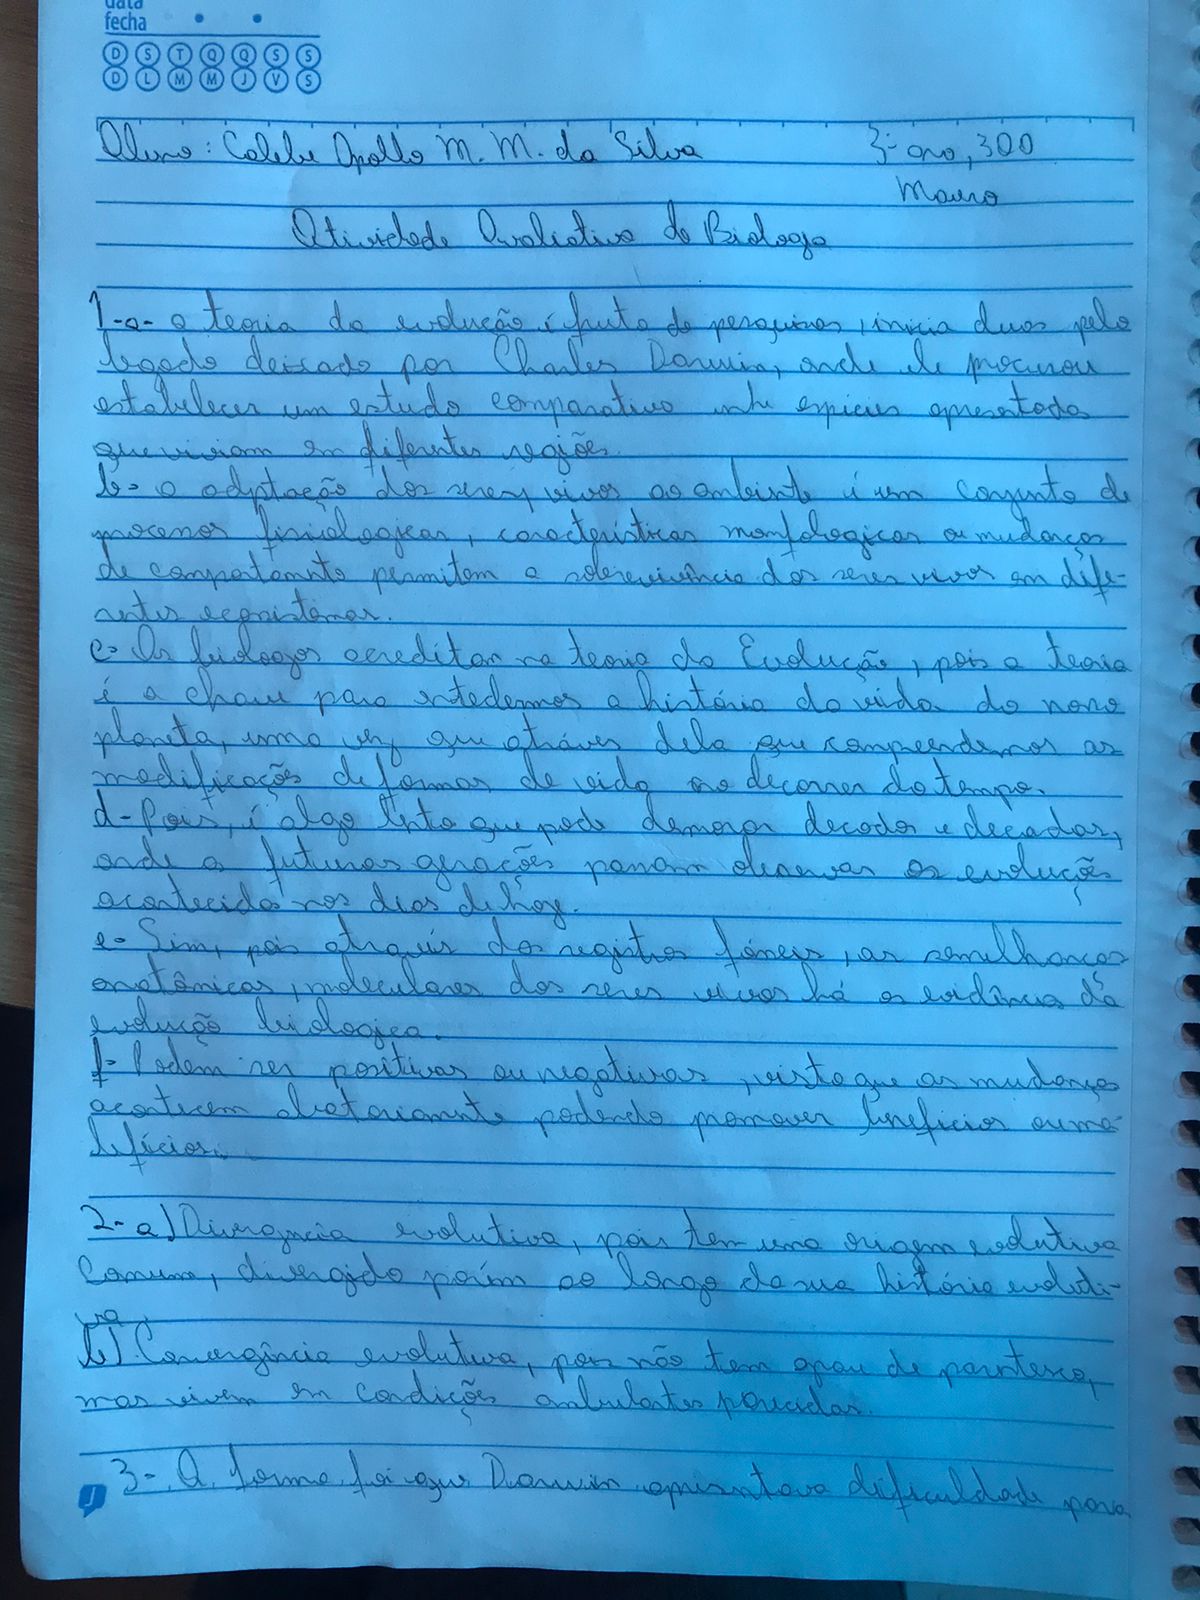 data
fecha
D S T Q Q S S
D L M M J V S
Aluno: Calebe Apollo M. M. da Silva 3º ano, 300
Mauro
Atividade Avaliativa de Biologa
1-a- a teoria da evolução é fruto de pesquisas, inicia duas pelo
legado deixado por Charles Darwin, onde ele procurou
estabelecer um estudo comparativo entre espécies aparentada
que viviam em diferentes regiões.
b- a adptação dos seres vivos ao ambiente é um conjunto de
processos fisiologicas, características morfologicas ou mudanças
de comportamento permitem a sobrevivência dos seres vivos em dife-
rentes ecossistemas.
c- Os biologos acreditam na teoria da Evolução, pois a teoria
é a chave para entedermos a história da vida do nosso
planeta, uma vez que atráves dela que compreendemos as
modificações de formas de vida no decorrer do tempo.
d- Pois, é algo lento que pode demorar decadas e decadas,
onde a futuras gerações possam observar as evoluções
acontecidas nos dias de hoje.
e- Sim, pois através dos registros fósseis, as semelhanças
anatômicas, moleculares dos seres vivos há as evidência da
evolução biologica.
f- Podem ser positivas ou negativas, visto que as mudanças
acontecem aleatoriamente podendo promover beneficios ou ma-
lefícios.
2- a) Divergência evolutiva, pois tem uma origem evolutiva
Comum, divergido porém ao longo da sua história evoluti-
va.
b) Convergência evolutiva, pois não tem grau de parentesco,
mas vivem em condições ambientes parecidas.
3- A forma foi que Darwin apresentava dificuldade para